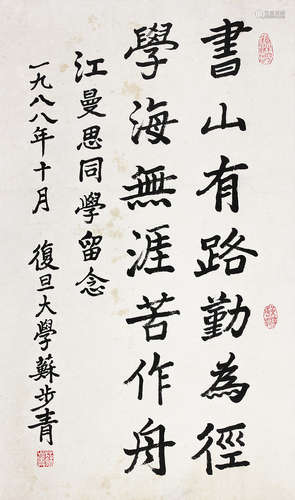 書山有路勤為徑
學海無涯苦作舟
江曼思同學留念
一九八八年十月 復旦大学蘇步青